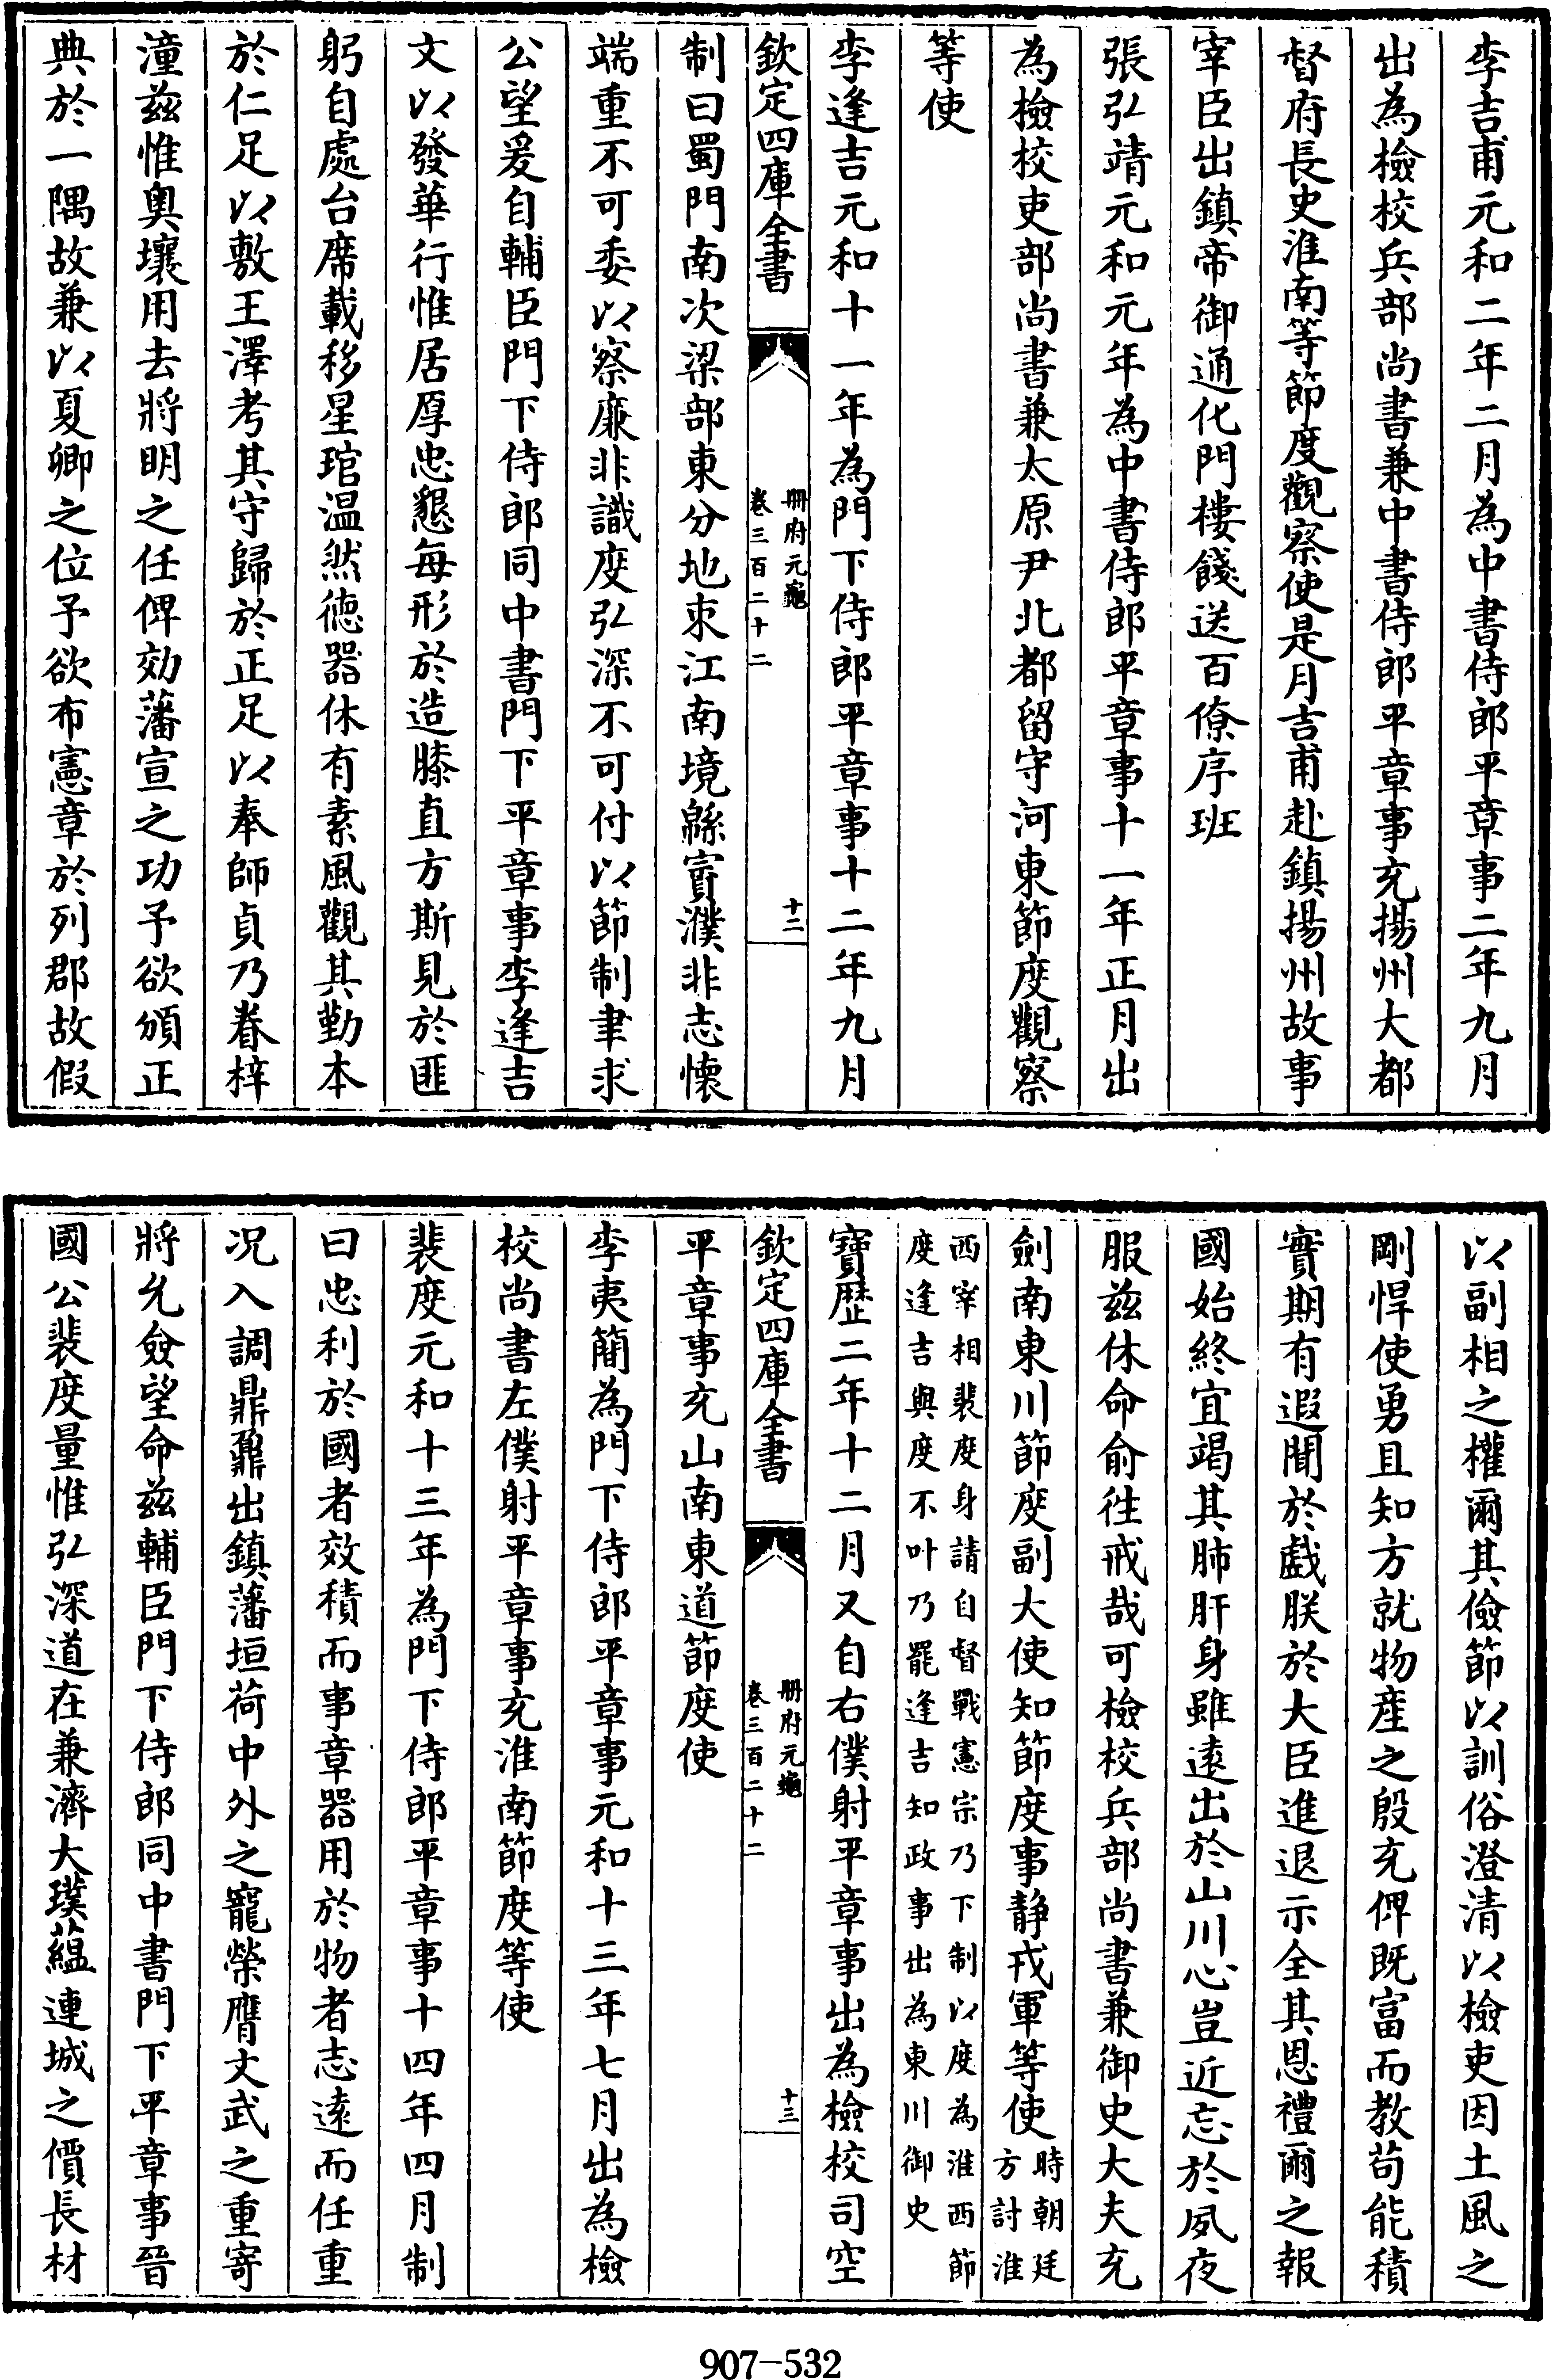 李吉甫元和二年二月為中書侍郎平章事二年九月
出為檢校兵部尚書兼中書侍郎平章事充揚州大都
督府長史淮南等節度觀察使是月吉甫赴鎮揚州故事
宰臣出鎮帝御通化門樓餞送百僚序班
張弘靖元和元年為中書侍郎平章事十一年正月出
為檢校吏部尚書兼太原尹北都留守河東節度觀察
等使
李逢吉元和十一年為門下侍郎平章事十二年九月
欽定四庫全書
册府元龜
卷三百二十二
十二
制曰蜀門南次梁部東分地束江南境緜賨濮非志懷
端重不可委以察廉非識度弘深不可付以節制聿求
公望爰自輔臣門下侍郎同中書門下平章事李逢吉
文以發華行惟居厚忠懇每形於造膝直方斯見於匪
躬自處台席載移星琯温然德器休有素風觀其勤本
於仁足以敷王澤考其守歸於正足以奉師貞乃眷梓
潼兹惟奥壤用去將明之任俾効藩宣之功予欲頒正
典於一隅故兼以夏卿之位予欲布憲章於列郡故假
以副相之權爾其儉節以訓俗澄清以檢吏因土風之
剛悍使勇且知方就物産之殷充俾既富而教苟能積
實期有遐聞於戯朕於大臣進退示全其恩禮爾之報
國始終宜竭其肺肝身雖逺出於山川心豈近忘於夙夜
服兹休命俞徃戒哉可檢校兵部尚書兼御史大夫充
劍南東川節度副大使知節度事静戎軍等使時朝廷
方討淮
西宰相裴度身請自督戰憲宗乃下制以度為淮西節
度逢吉與度不叶乃罷逢吉知政事出為東川御史
寶歴二年十二月又自右僕射平章事出為檢校司空
欽定四庫全書
册府元龜
卷三百二十二
十三
平章事充山南東道節度使
李夷簡為門下侍郎平章事元和十三年七月出為檢
校尚書左僕射平章事充淮南節度等使
裴度元和十三年為門下侍郎平章事十四年四月制
曰忠利於國者效積而事章器用於物者志逺而任重
况入調鼎鼐出鎮藩垣荷中外之寵榮膺文武之重寄
將允僉望命兹輔臣門下侍郎同中書門下平章事晉
國公裴度量惟弘深道在兼濟大璞藴連城之價長材
907-532